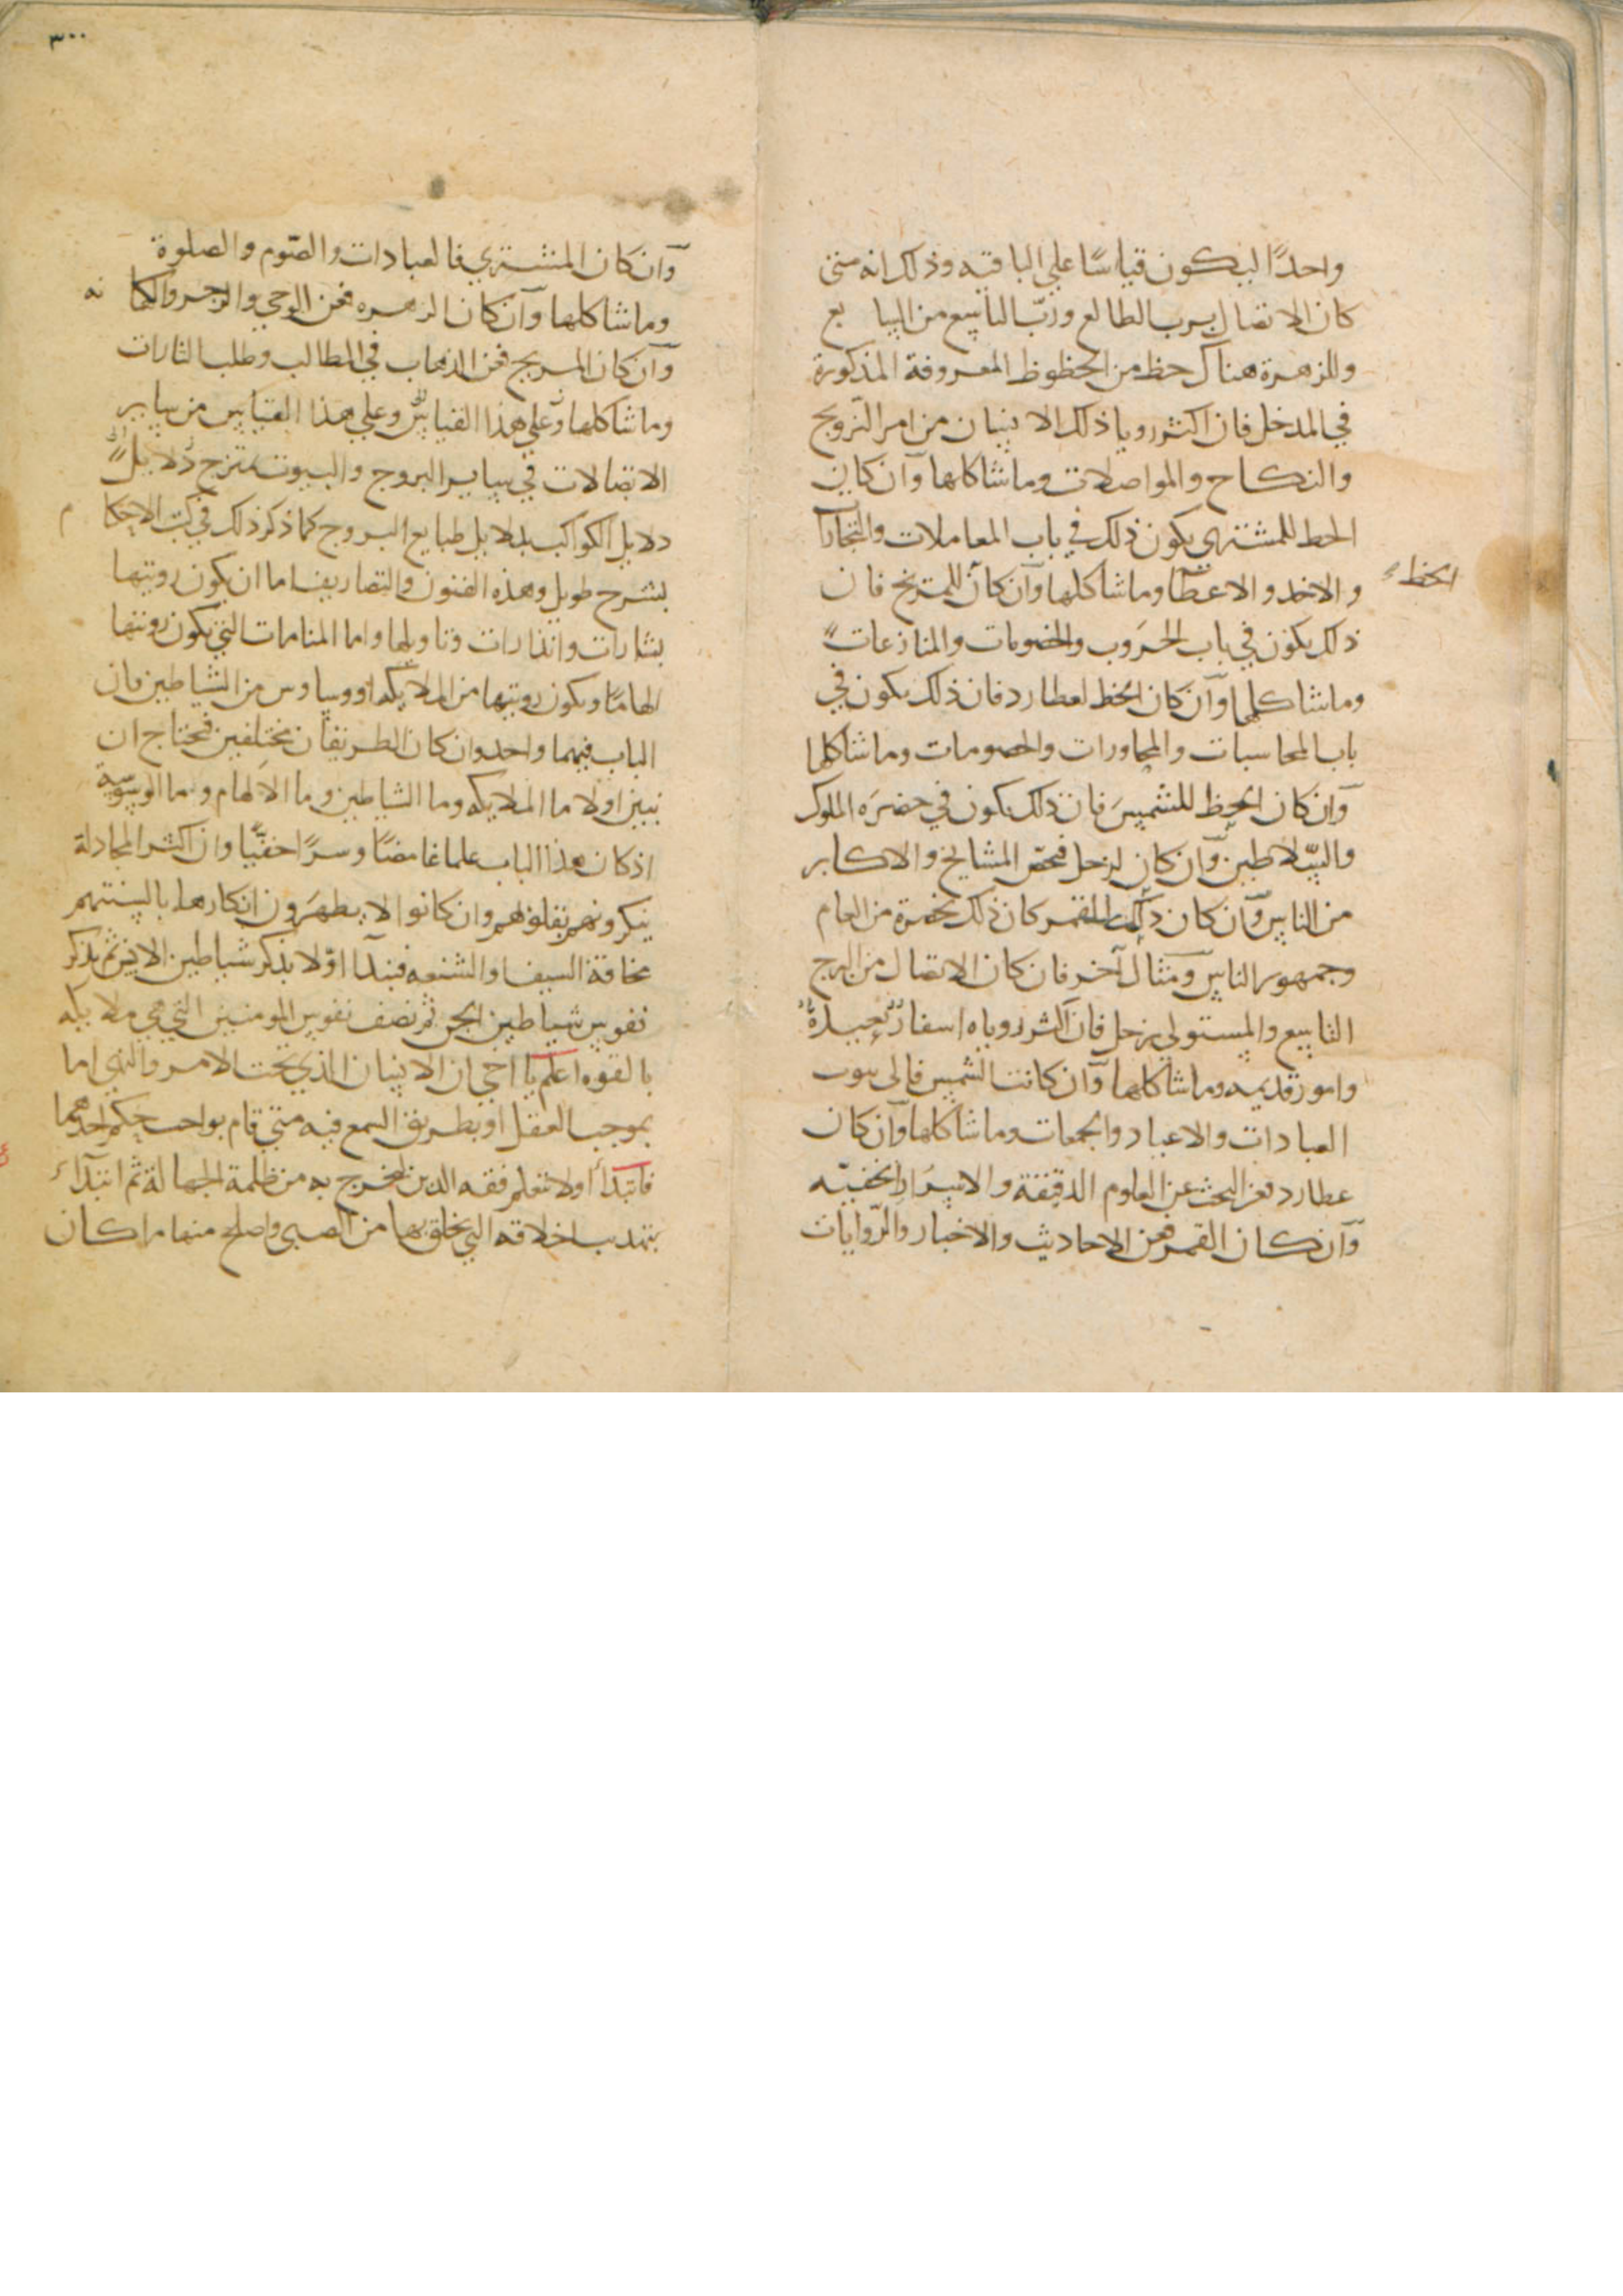 واحدًا ليكون قياسًا علي الباقيه وذلك انه متى
كان الاتصال برب الطالع وربّ التاسع من السابع
وللزهرة هناك حظ من الحظوظ المعروفة المذكورة
في المدخل فان اكثر رويا ذلك الانسان من امر التزويج
والنكاح والمواصلات وما شاكلها وآن كان
الحط للمشتري يكون ذلك في باب المعاملات والتجارآ
والاخد والاعطآ وما شاكلها وآن كان للمريخ فان
الحظ
ذلك يكون في باب الحروب والخصومات والمنازعات
وما شاكلها وآن كان الحظ لعطارد فان ذلك يكون في
باب المحاسبات والمحاورات والخصومات وما شاكلها
وآن كان الحظ للشمس فان ذلك يكون في حضره الملوك
والسّلاطين وآن كان لزحل فنحو المشايخ والاكابر
من الناس وآن كان ذلك للقمر كان ذلك بحضرة من العام
وجمهور الناس ومثال آخر فان كان الاتصال من البرج
التاسع والمستولى زحل فان اكثر روياه اسفار بعيدة
وامور قديمه وما شاكلها وآن كانت الشمس فالى بيوت
العبادات والاعياد والجمعات وما شاكلها وآن كان
عطارد فعن البحث عن العلوم الدقيقة والاسرار الخفيّه
وآن كان القمر فعن الاحاديث والاخبار والرّوايات
٣٠٠
وآن كان المشتري فالعبادات والصّوم والصلوة
وما شاكلها وآن كان الزهره فعن الوحي والزجر والكهانه
وآن كان المريخ فعن الذهاب في المطالب وطلب الثارات
وما شاكلها وعلي هذا القياس وعلي هذا القياس من ساير
الاتصالات في ساير البروج والبيوت تمتزج دلايل
دلايل الكواكب بدلايل طبايع البروج كما ذكر ذلك في كتب الاحكام
بشرح طويل وهذه الفنون والتصاريف اما ان يكون رويتها
بشارات وانذارات وتاويلها واما المنامات التي يكون رويتها
الهامًا ويكون رويتها من الملايكه او وساوس من الشياطين فان
الباب فيهما واحد وان كان الطريقان مختلفين فنحتاج ان
نبين اولا ما الملايكه وما الشياطين وما الالهام وما الوسوسة
اذ كان هذا الباب علما غامضًا وسرًا خفيًّا وان اكثر المجادلة
ينكرونهم بقلوبهم وان كانوا لا يظهرون انكارها بالسنتهم
مخافة السيف والشنعه فنبدآ اوّلا بذكر شياطين الانس ثم بذكر
نفوس شياطين الجن ثم نصف نفوس المومنين التي هي ملايكه
بالقوه اعلم يا اخي ان الانسان الذي تحت الامر والنهي اما
بموجب العقل او بطريق السمع فيه متى قام بواجب حكم احدهما
فابتدأ اولا بتعلم فقه الدين ليخرج به من ظلمة الجهالة ثم ابتدآء
بتهذيب اخلاقه التي تخلق بها من الصبى واصلح منها ما كان